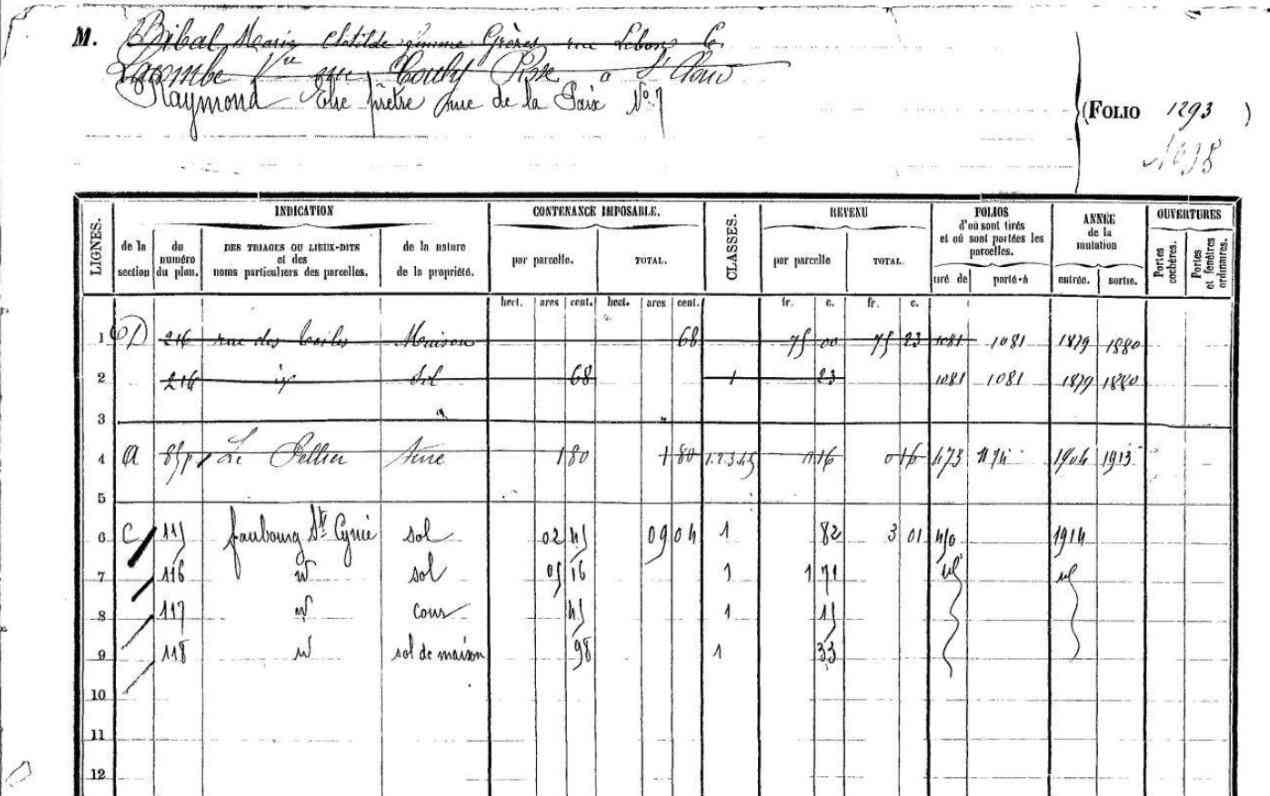 M. Bibal Marie Clotilde femme Grèzes rue
Lacombe Vve à St
Raymond Elie prêtre rue de la Paix No 7
(FOLIO 1293 )
INDICATION CONTENANCE IMPOSABLE. REVENU FOLIOS ANNÉE OUVERTURES
LIGNES. de la section du numéro du plan. DES TRIAGES OU LIEUX-DITS et des noms particuliers des parcelles. de la nature de la propriété. par parcelle. TOTAL. CLASSES. par parcelle TOTAL. d'où sont tirés et où sont portées les parcelles. de la mutation Portes cochères. Portes et fenêtres ordinaires.
tiré de porté à entrée. sortie.
hect. ares cent. hect. ares cent. fr. c. fr. c.
1 216 rue des Maison 68 75 00 75 23 1081 1081 1879 1880
2 216 id Sol 68 1 23 1081 1081 1879 1880
3
4 a 85p Le Pellier terre 1 80 1 80 1.2.3.4.5 16 0 16 473 1904 1913
5
6 C 115 faubourg St Cyrice sol 02 45 09 04 1 82 3 01 450 1914
7 116 id sol 05 16 1 1 71 id id
8 117 id cour 45 1 15
9 118 id sol de maison 98 1 33
10
11
12